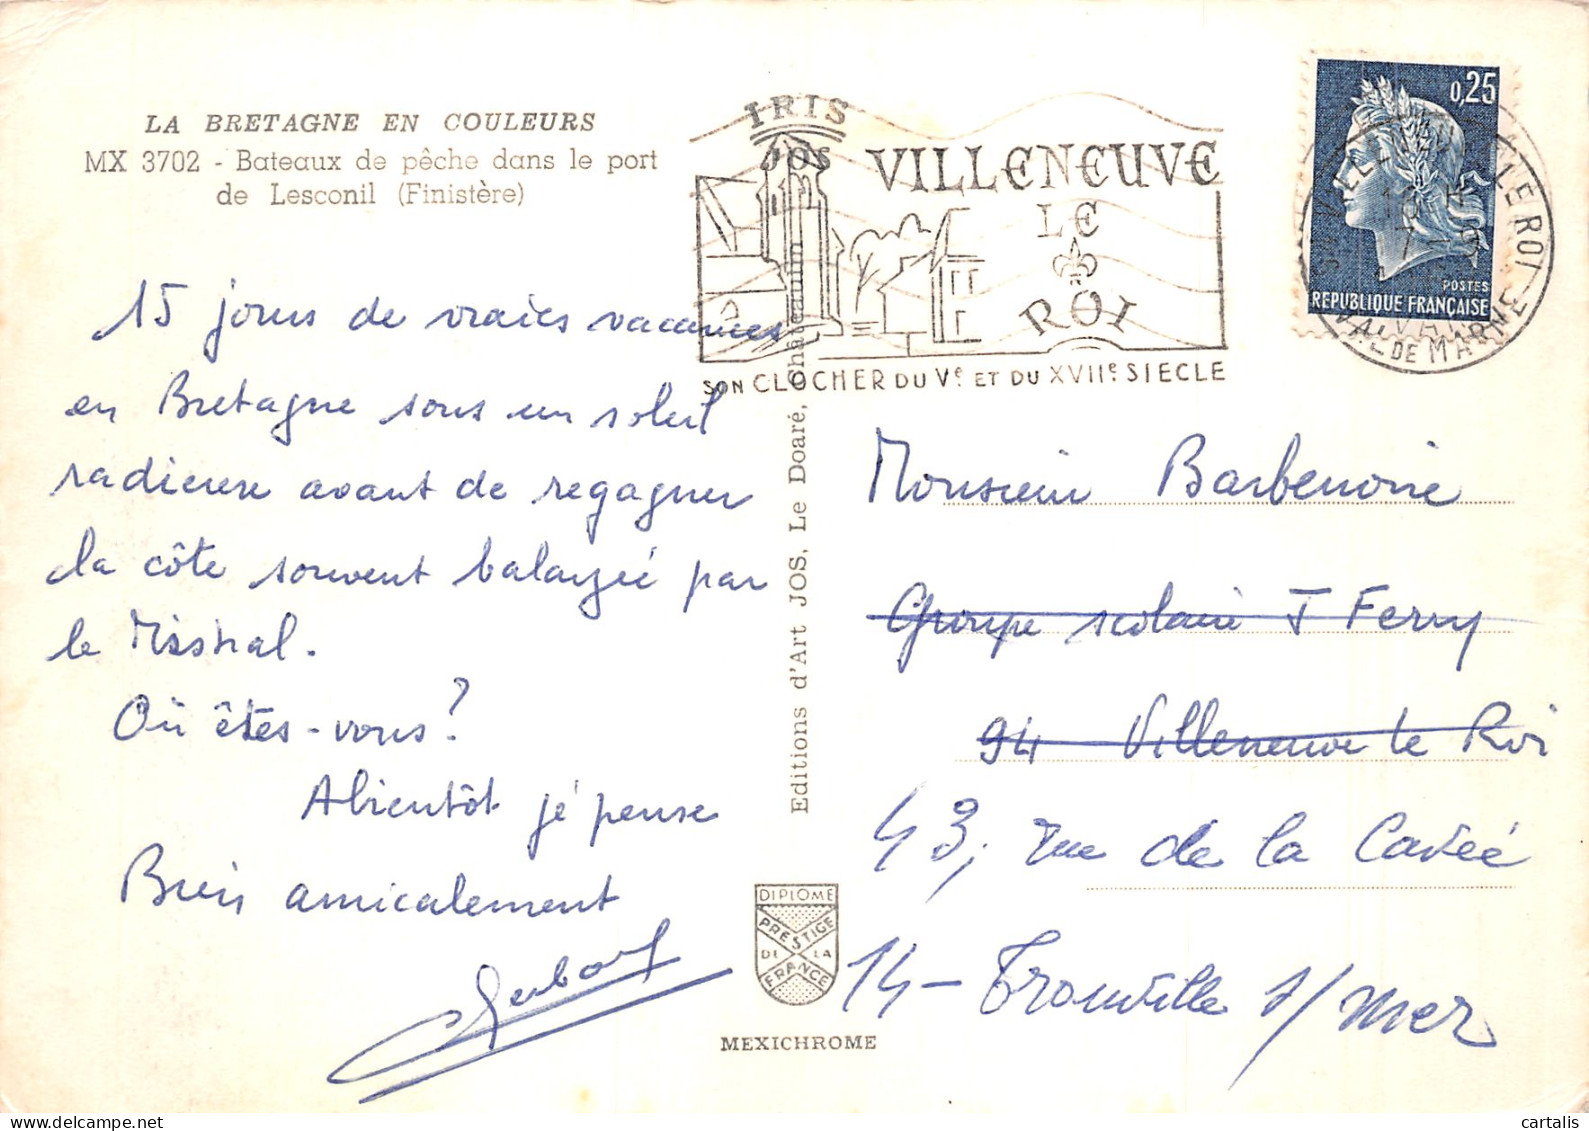 LA BRETAGNE EN COULEURS
MX 3702 - Bateaux de pêche dans le port
de Lesconil (Finistère)
15 jours de vraies vacances
en Bretagne sous un soleil
radieuse avant de regagner
la côte souvent balayée par
le Mistral.
Où êtes-vous?
Abientôt je pense
Bien amicalement
IRIS
JOS
Editions d'Art JOS, Le Doaré, Châteaulin
DIPLOME
PRESTIGE
DE LA
FRANCE
MEXICHROME
VILLENEUVE
LE
ROI
SON CLOCHER DU Ve ET DU XVIIe SIECLE
0,25
POSTES
REPUBLIQUE FRANÇAISE
LE ROI
VAL DE MARNE
Monsieur Barbenoire
Groupe scolaire J Ferry
94 Villeneuve le Roi
43, rue de la Cavée
14 - Trouville s/mer
cartalis